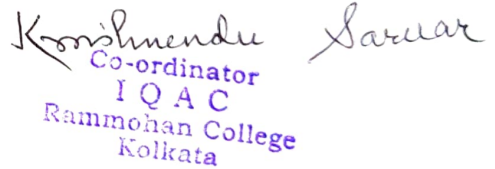 Krishnendu Sarkar
Co-ordinator
I Q A C
Rammohan College
Kolkata